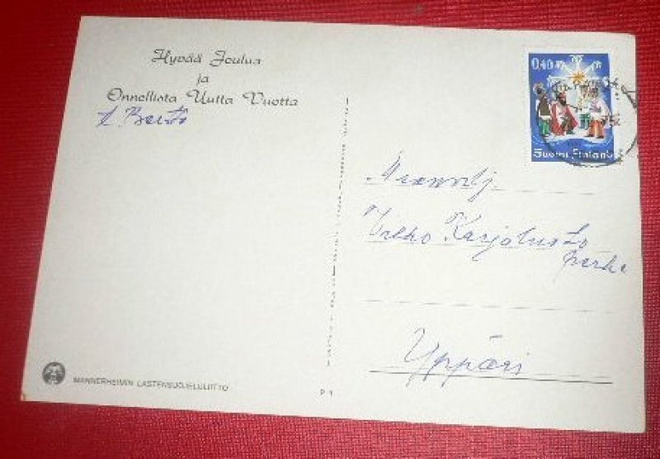 Hyvää Joulua
ja
Onnellista Uutta Vuotta
0,40
Suomi Finland
Veikko Karjaluoto
perhe
Yppäri
MANNERHEIMIN LASTENSUOJELULIITTO
P 1